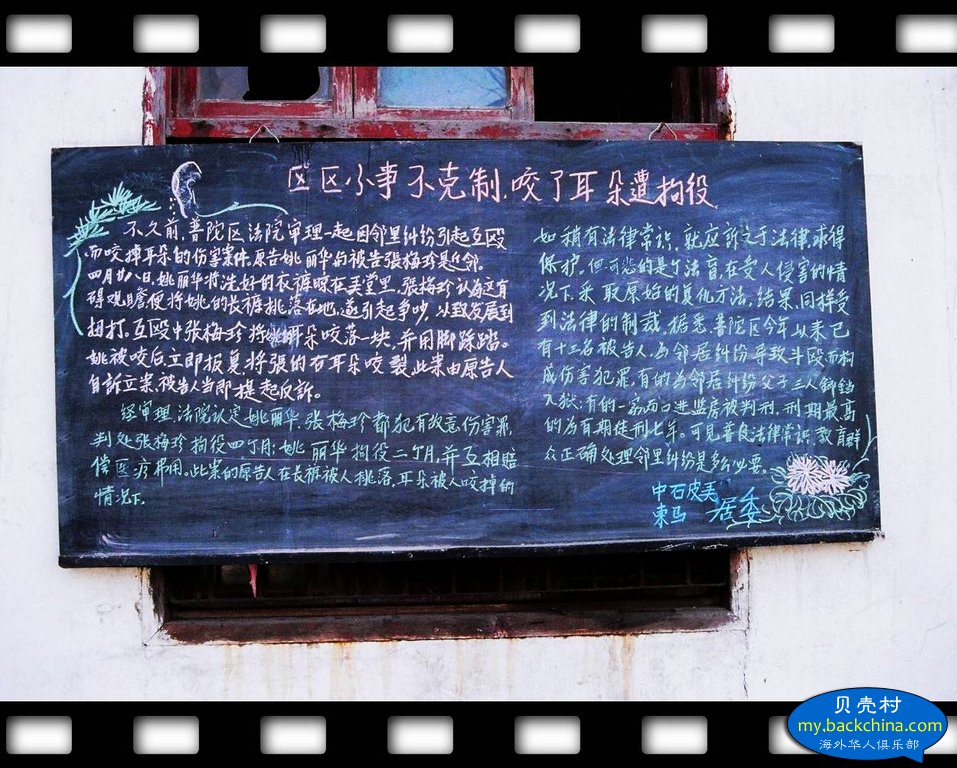 区区小事不克制.咬了耳朵遭拘役
不久前,普陀区法院审理一起因邻里纠纷引起互殴
而咬掉耳朵的伤害案件.原告姚丽华与被告张梅珍是近邻.
四月廿八日,姚丽华将洗好的衣裤晾在天堂里.张梅珍认为这有
碍观瞻便将姚的长裤挑落在地,遂引起争吵,以致发展到
扭打,互殴中张梅珍将姚耳朵咬落一块,并用脚踩踏。
姚被咬后立即报复将張的右耳朵咬裂此案由原告人
自訴立案被告人当即提起反訴。
经审理,法院认定姚丽华.张梅珍都犯有故意伤害罪,
判处张梅珍拘役四个月;姚丽华拘役二个月,并互相賠
偿医疗费用。此案的原告人在長裤被人挑落,耳朵被人咬掉的
情况下.
如稍有法律常识,就应訴之于法律,求得
保护.但可悲的是个法盲,在受人侵害的情
况下,采取原始的复仇方法,结果同样受
到法律的制裁.据悉,普陀区今年以来已
有十三名被告人,为邻居纠纷导致斗殴而构
成伤害犯罪,有的为邻居纠纷父子三人鋃铛
入狱;有的一家两口进监房被判刑,刑期最高
的为有期徒刑七年。可见普及法律常识,教育群
众正确处理邻里纠纷是多么必要.
中石皮美
東马 居委
贝壳村
my.backchina.com
海外华人俱乐部